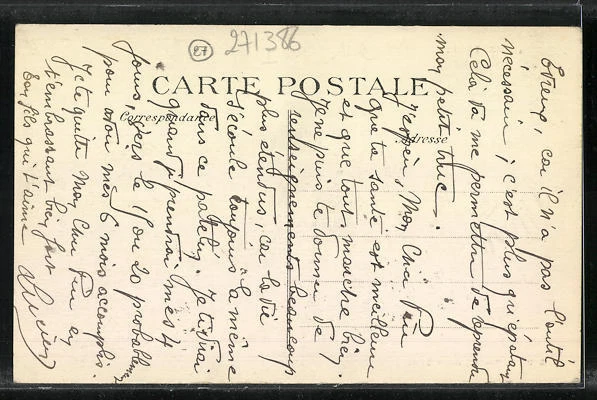 27
271386
CARTE POSTALE
Correspondance
Adresse
Evreux, car il n'a pas l'outil
nécessaire ; c'est plus qu'épatant
Cela va me permettre de reprendre
mon petit truc.
J'espère, Mon Cher Père
que ta santé est meilleure
et que tout marche bien.
Je ne puis te donner de
renseignements beaucoup
plus étendus, car la vie
s'écoule toujours la même
dans ce patelin. Je te dirai
quand je prendrai mes 4
jours, vers le 15 ou 20 probablem
pour avoir mes 6 mois accomplis.
Je te quitte Mon Cher Père en
t'embrassant bien fort
Ton fils qui t'aime
Lucien